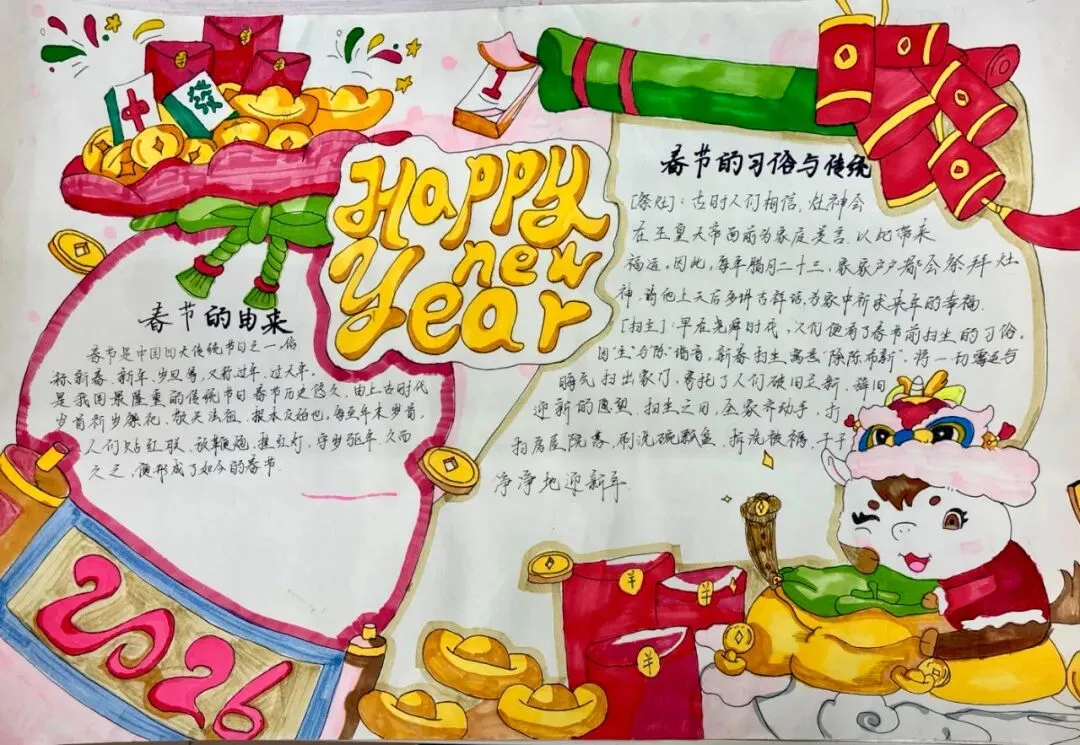 中
發
1
Happy
new
Year
春节的由来
春节是中国四大传统节日之一,俗
称新春、新年、岁旦等,又称过年、过大年。
是我国最隆重的传统节日.春节历史悠久,由上古时代
岁首祈岁祭祀、敬天法祖、报本反始也,每至年末岁首,
人们贴红联、放鞭炮、挂红灯、守岁驱年,久而
久之,便形成了如今的春节.
春节的习俗与传统
[祭灶]:古时人们相信,灶神会
在玉皇大帝面前为家庭美言.以此带来
福运。因此,每年腊月二十三,家家户户都会祭拜灶
神,前他上天后多讲吉祥话,为家中祈求来年的幸福.
[扫尘]:早在尧舜时代,人们便有了春节前扫尘的习俗。
因"尘"为"陈"谐音,新春扫尘寓意"除陈布新",将一切霉运与
晦气扫出家门,寄托了人们破旧立新、辞旧
迎新的愿望.扫尘之日,全家齐动手,打
扫房屋院落、刷洗碗瓢盆、拆洗被褥,干干
净净地迎新年.
2026
羊
羊
羊